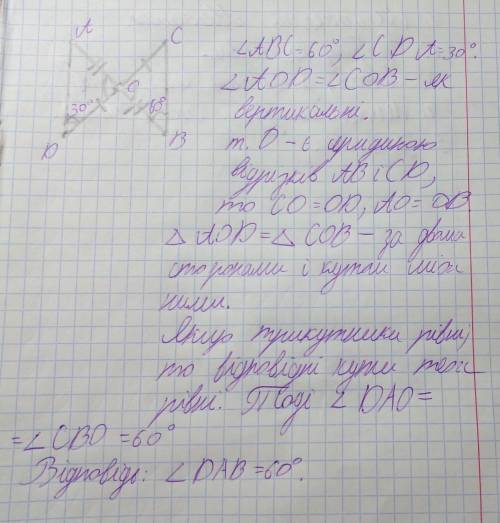 A C
O
30° 60°
D B
∠ABC=60°, ∠CDA=30°.
∠AOD=∠COB – як
вертикальні.
т. О – є серединою
відрізків АВ і CD,
то CO=OD, AO=OB
△AOD=△COB – за двома
сторонами і кутом між
ними.
Якщо трикутники рівні,
то відповідні кути теж
рівні. Тоді ∠DAO=
=∠CBO=60°
Відповідь: ∠DAB=60°.